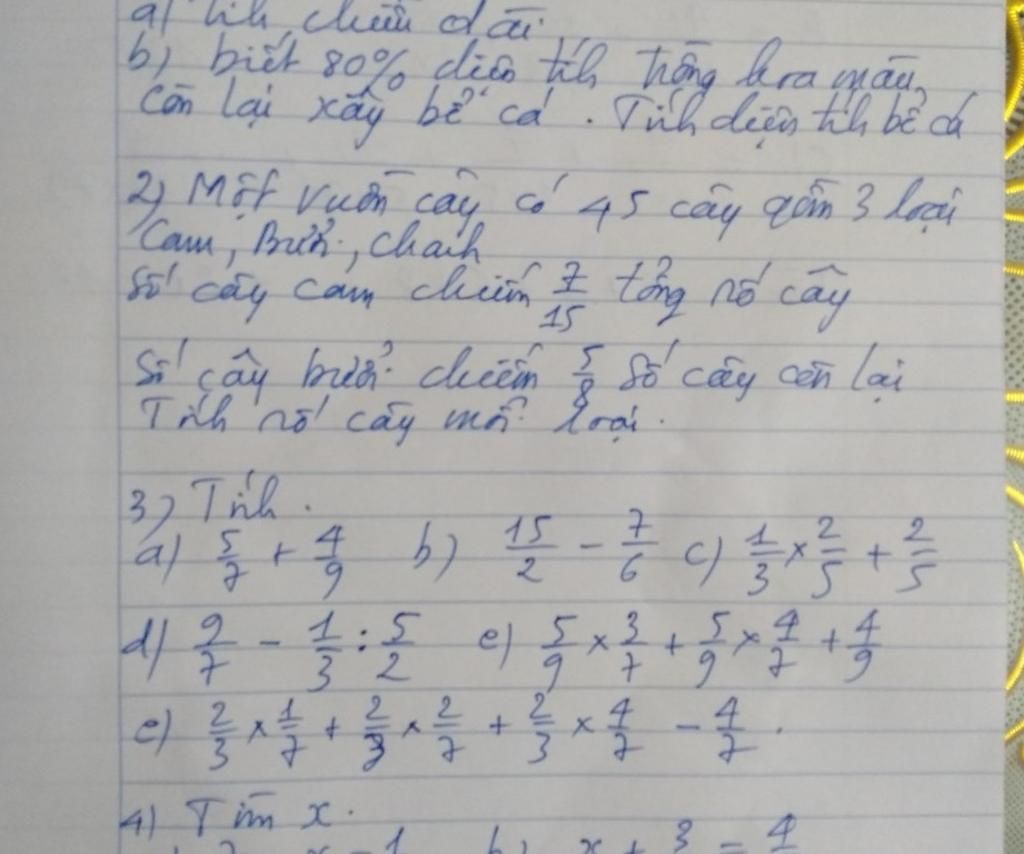 a) Tính chiều dài
b) biết 80% diện tích trồng hoa màu,
còn lại xây bể cá. Tính diện tích bể cá
2) Một vườn cây có 45 cây gồm 3 loại
Cam, Bưởi, chanh
Số cây cam chiếm 7/15 tổng số cây
Số cây bưởi chiếm 5/8 số cây còn lại
Tính số cây mỗi loại.
3) Tính.
a) 5/7 + 4/9 b) 15/2 - 7/6 c) 1/3 × 2/5 + 2/5
d) 9/7 - 1/3 : 5/2 e) 5/9 × 3/7 + 5/9 × 4/7 + 4/9
e) 2/3 × 1/7 + 2/3 × 2/7 + 2/3 × 4/7 - 4/7.
4) Tìm x.